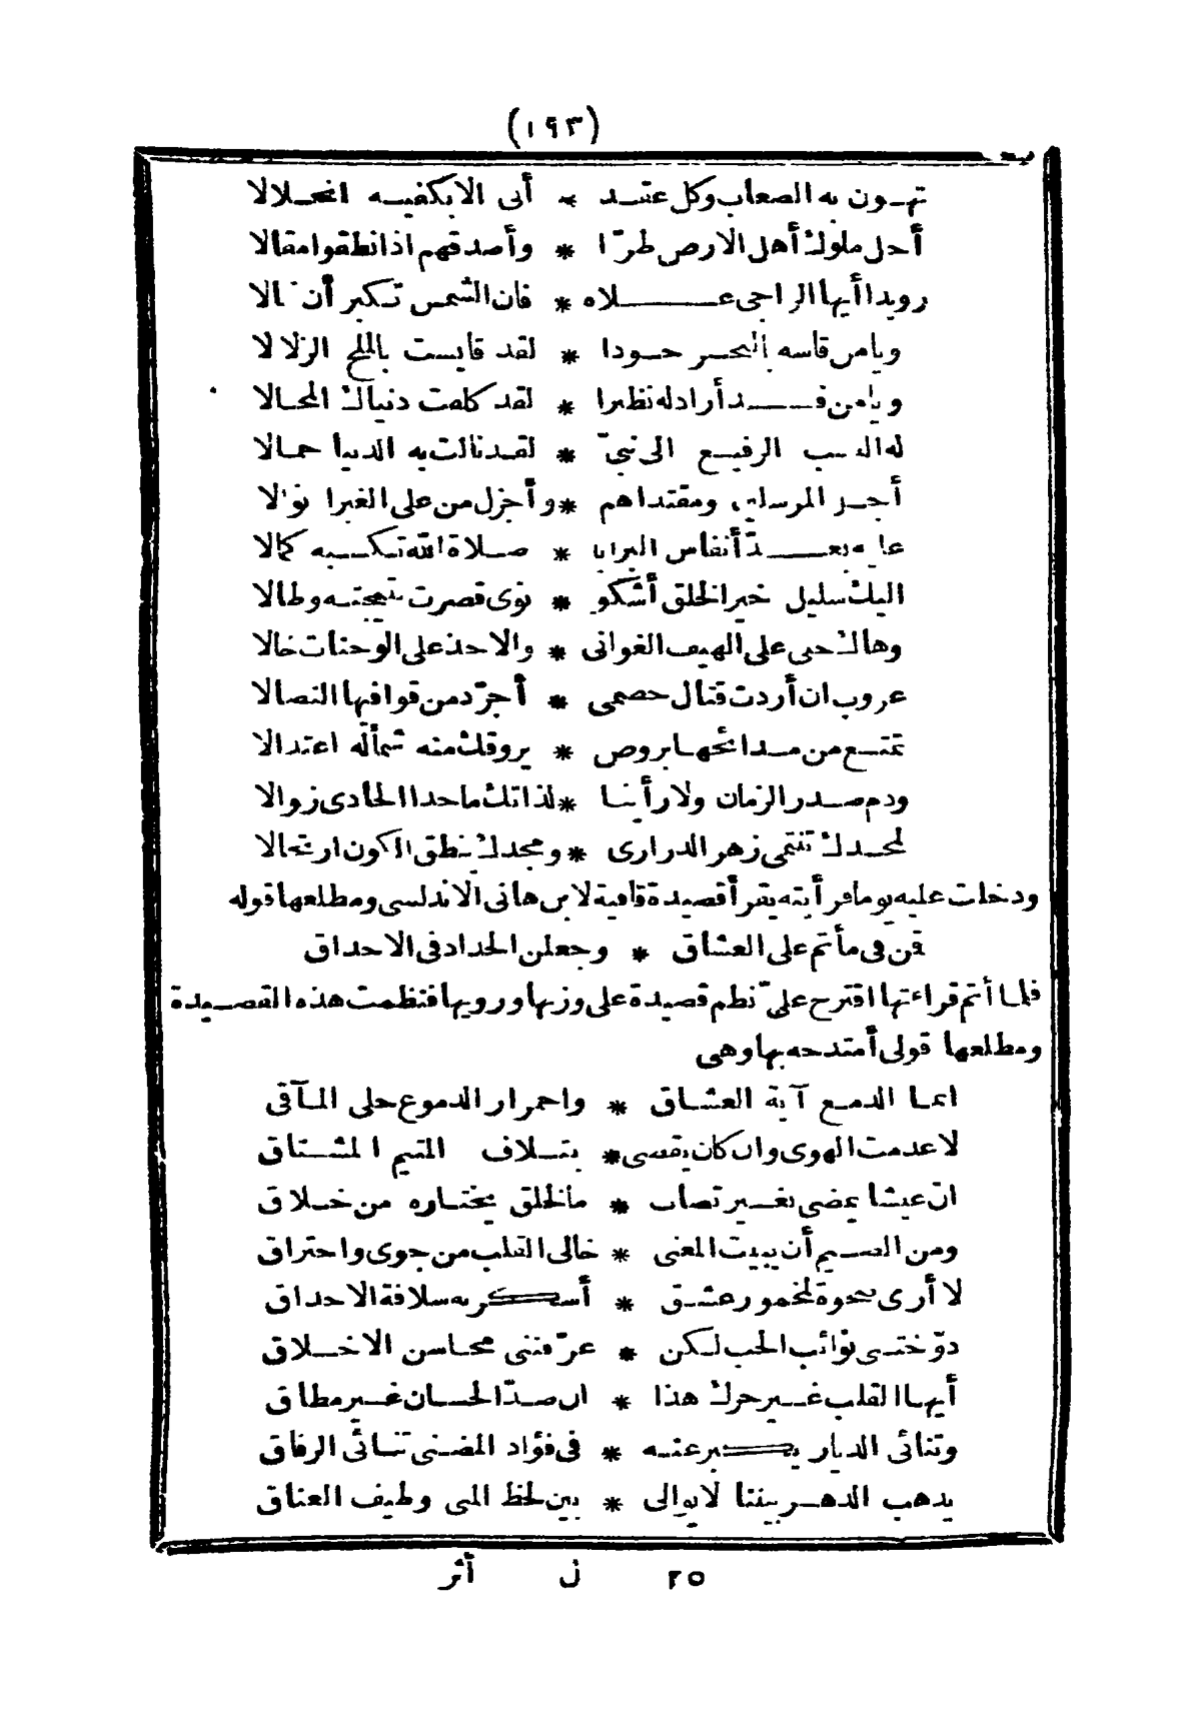 (١٩٣)
تهون به الصعاب وكل عقد * أبى الا بكفيه انحلالا
أجل ملوك أهل الارض طرّا * وأصدقهم اذا نطقوا مقالا
رويدا أيها الراجى علاه * فان الشمس تكبر أن تنالا
ويا من قاسه بالبحر جودا * لقد قايست بالملح الزلالا
ويا من قد أراد له نظيرا * لقد كلفت دنياك المحالا
له النسب الرفيع الى نبىّ * لقد نالت به الدنيا جمالا
أجل المرسلين ومقتداهم * وأجزل من على الغبرا نوالا
عليه بعدّ أنفاس البرايا * صلاة الله تكسبه كمالا
اليك سليل خير الخلق أشكو * نوى قصرت بمهجته وطالا
وهاك حلى على الهيف الغوانى * والا خذ على الوجنات خالا
عروب ان أردت قتال خصمى * أجرّد من قوافيها النصالا
تمتع من مدائحها بروض * يروقك منه شمأله اعتدالا
ودم صدر الزمان ولا رأينا * لذاتك ما حدا الحادى زوالا
لمجدك تنتمى زهر الدرارى * ومجدك ينطق الكون ارتجالا
ودخلت عليه يوما فرأيته يقرأ قصيدة قافية لابن هانى الاندلسى ومطلعها قوله
قمن فى مأتم على العشاق * وجعلن الحداد فى الاحداق
فلما أتم قراءتها اقترح علىّ نظم قصيدة على وزنها ورويها فنظمت هذه القصيدة
ومطلعها قولى أمتدحه بها وهى
انما الدمع آية العشاق * واحمرار الدموع حلى المآقى
لا عدمت الهوى وان كان يقضى * بتلاف المتيم المشتاق
ان عيشا يمضى بغير تصاب * ما لخلق يختاره من خلاق
ومن الضيم أن يبيت المعنى * خالى القلب من جوى واحتراق
لا أرى صحوة لمخمور عشق * أسكرته سلافة الاحداق
دوّختنى نوائب الحب لكن * عرّفتنى محاسن الاخلاق
أيها القلب غير حرك هذا * ان صدّ الحسان غير مطاق
وتنائى الديار يكبر عنه * فى فؤاد المضنى تنائى الرفاق
يذهب الدهر بيننا لا يوالى * بين لحظ المنى وطيف العناق
٢٥ ل أثر